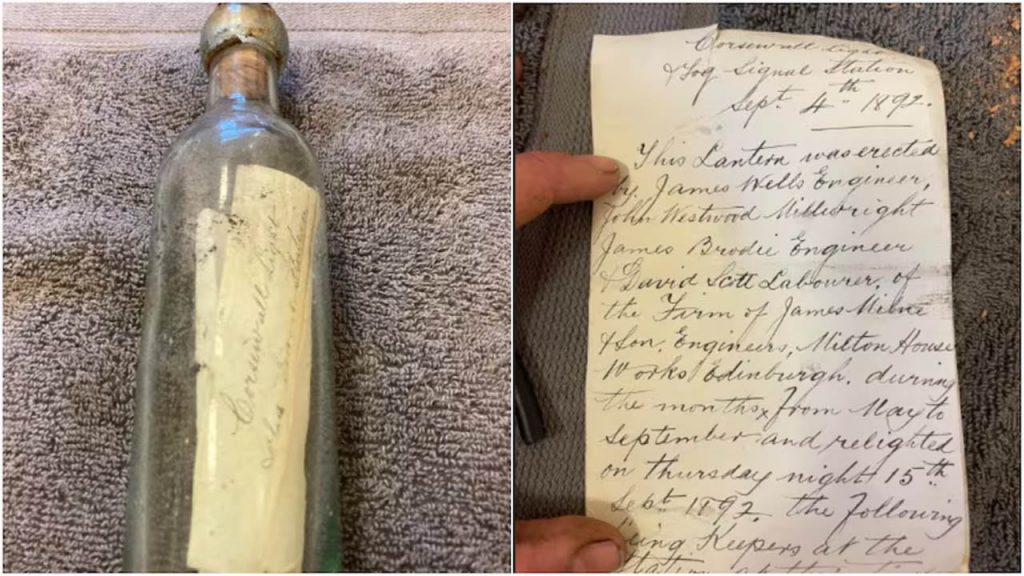 Corsewall Light
Corsewall Light
& Fog Signal Station
Sept. 4th 1892.
This Lantern was erected
by James Wells Engineer,
John Westwood Millwright
James Brodie Engineer
& David Scott Labourer, of
the Firm of James Milne
& Son. Engineers, Milton House
Works Edinburgh. during
the months from May to
September and relighted
on Thursday night 15th
Sept 1892. The following
being Keepers at the